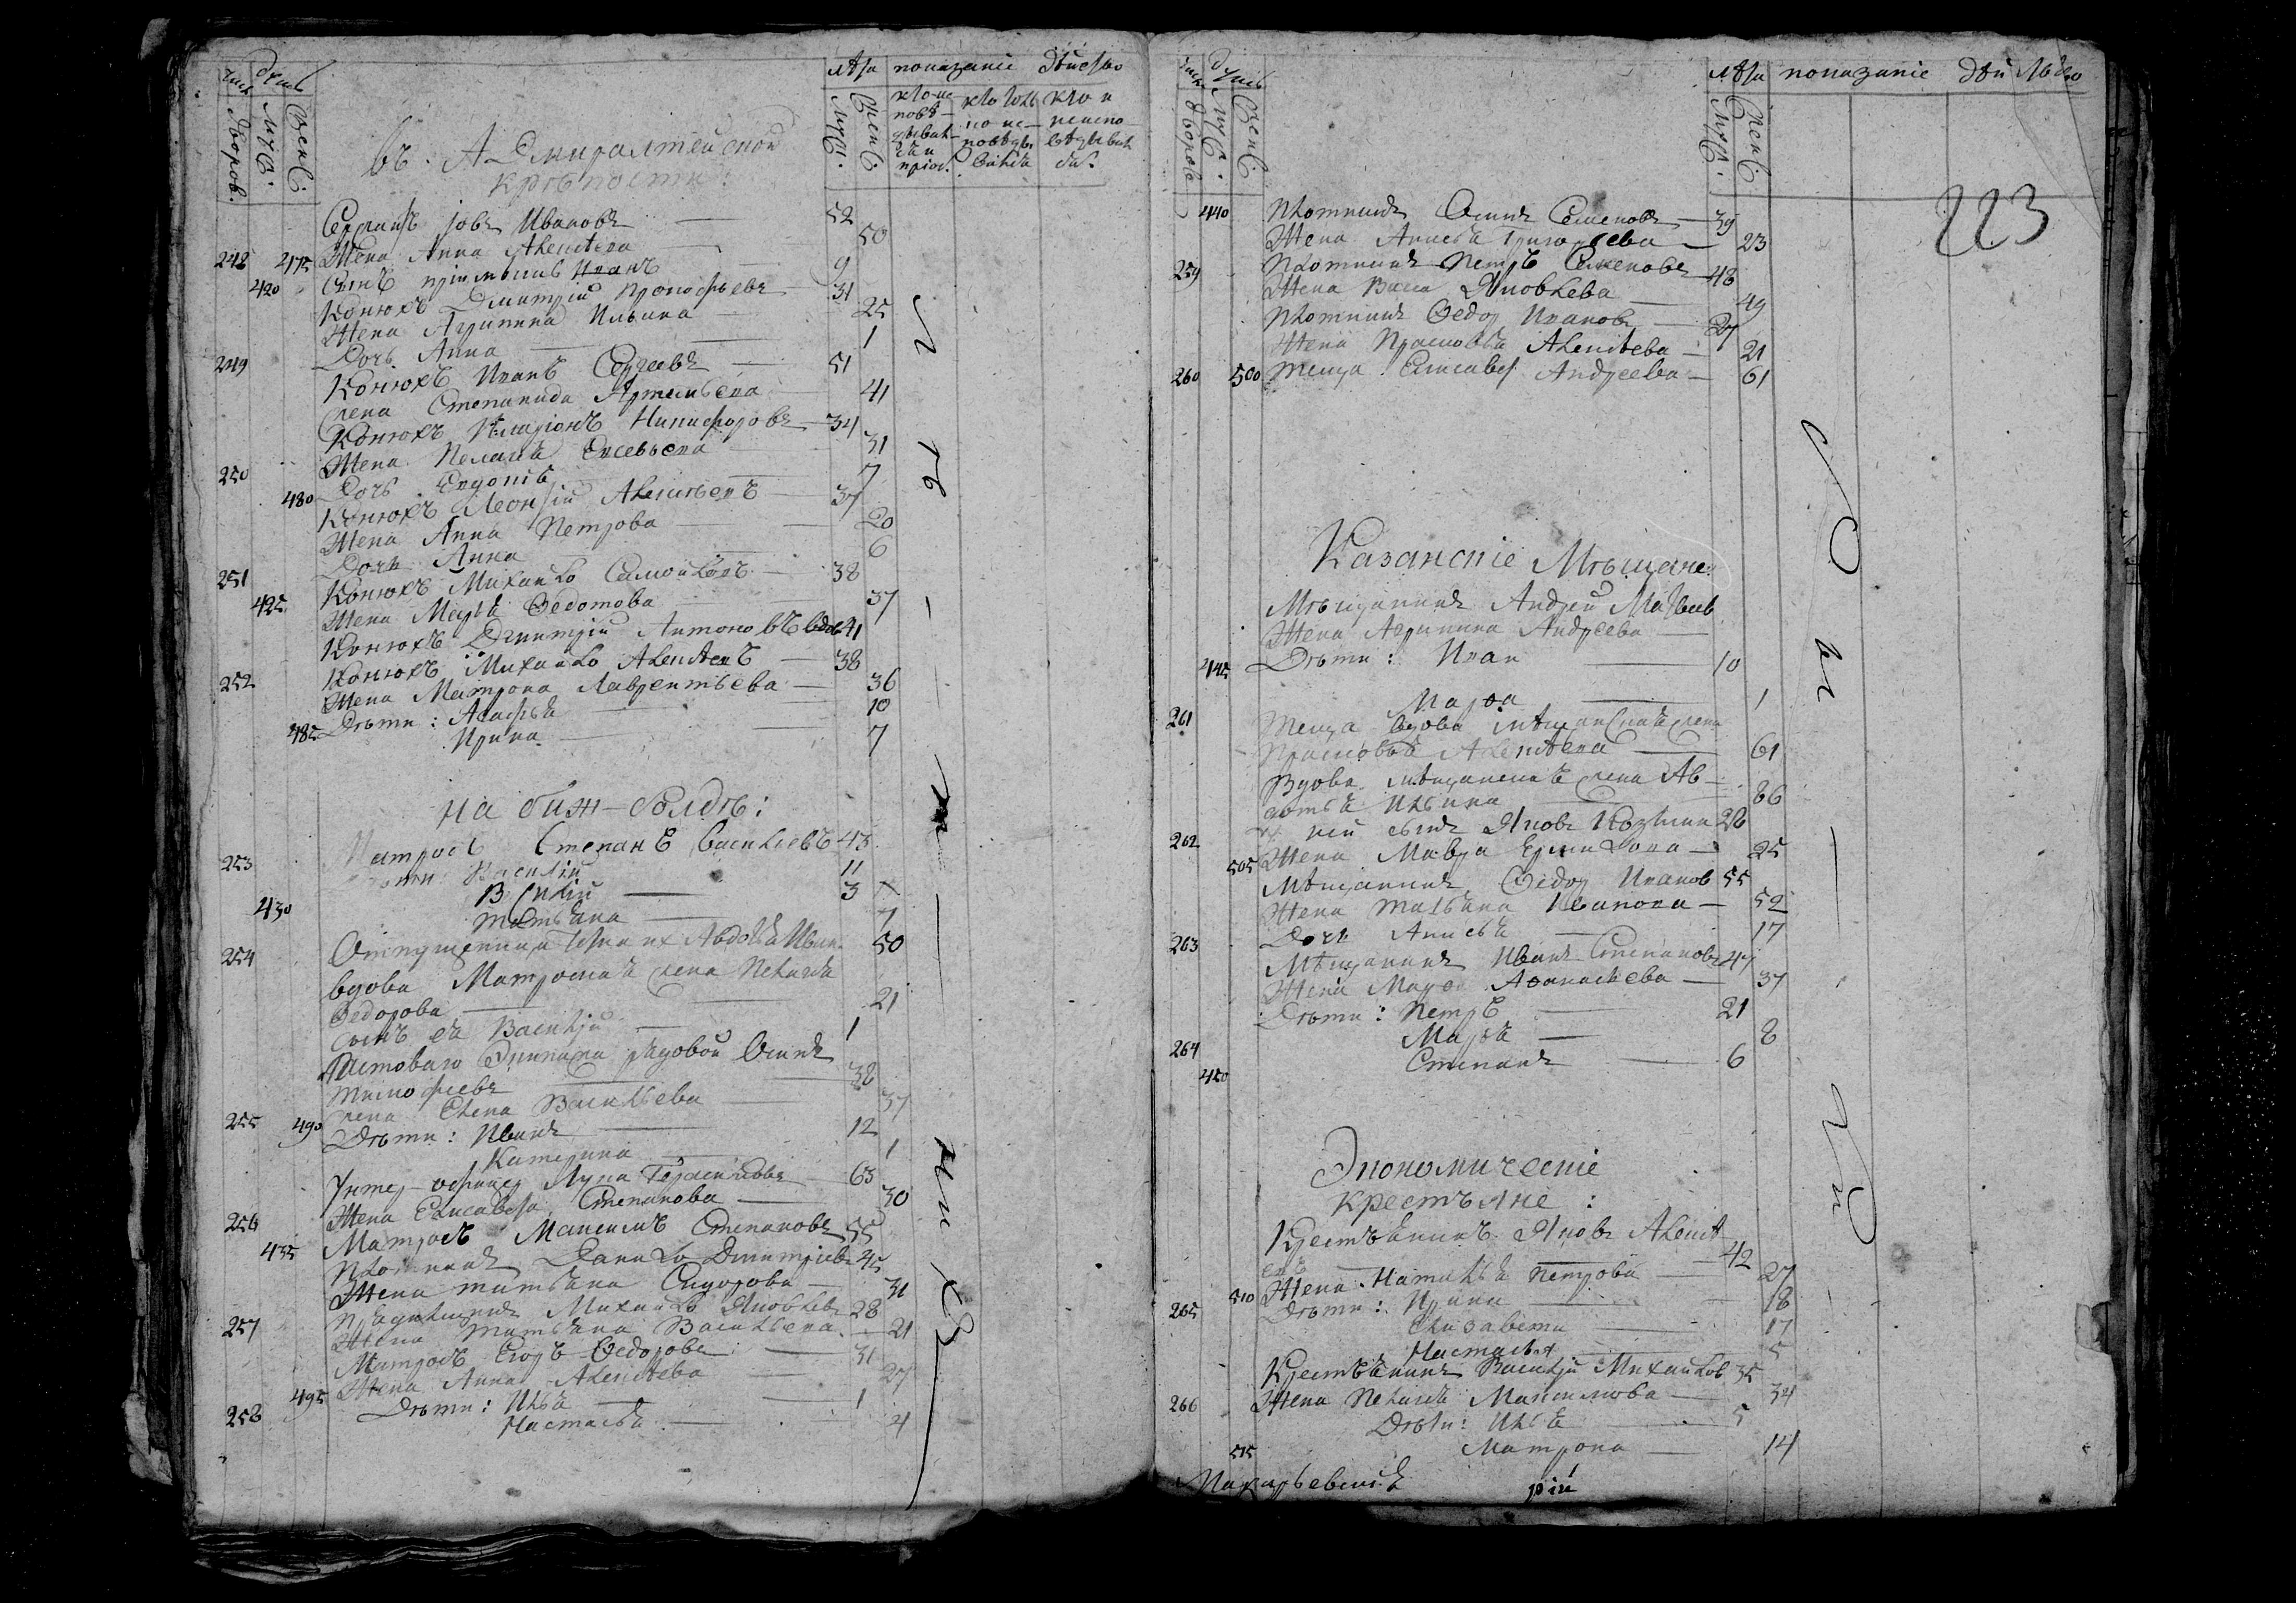 число дворовъ.
душъ
муж:
женс:
въ. Адмиралтейской
крѣпости:
лѣта
показаніе дѣйство
муж:
женс:
кто не
кто и
Сержантъ Іовъ Ивановъ 52
Жена Анна Алексѣева 50
248 475 Сынъ пріимышъ Иванъ 9
420 Конюхъ Дмитрій Прокофьевъ 31
Жена Агрипина Ильина 25
Дочь Анна 1
249 Конюхъ Иванъ Сергеевъ 51
жена Степанида Артемьева 41
Конюхъ Иларіонъ Никифоровъ 34
Жена Пелагѣя Евсевьева 31
250 Дочь Евдокія 7
480 Конюхъ Леонтій Алексѣевъ 37
Жена Анна Петрова 20
Дочь Анна 6
251 Конюхъ Михайло Самойловъ 38
425 Жена Марья Федотова 37
Конюхъ Дмитрій Антоновъ вдов 41
Конюхъ Михайло Алексѣевъ 38
252 Жена Матрона Лаврентьева 36
Дѣти: Агафья 10
485 Ирина 7
на биж-болдѣ:
Матросъ Степанъ Васильевъ 43
253 Василій 11
В силій 3
430 Татьяна 7
Отпущенная Авдотья Иван 50
254 вдова Матроская жена Пелагѣя
Федорова 21
сынъ ея Василій 1
Ластоваго Экипажа рядовой Осипъ
Тимофѣевъ 38
жена Елена Васильева 37
255 490 Дѣти: Иванъ 12
Катерина 1
Унтер-офицер Лука Герасимовъ 63
Жена Елисавета Степанова 30
256 Матросъ Максимъ Степановъ 55
435 Плотникъ Данило Дмитріевъ 45
Жена Татьяна Сидорова 31
Михайло Яковлевъ 28
257 Жена Татьяна Васильева 21
Матросъ Егоръ Федоровъ 31
Жена Анна Алексѣева 27
495 Дѣти: Илья 1
258 Настасья 4
число дворовъ
душъ
муж.
женс:
лѣта
показаніе дѣйство
муж.
женс:
223
440 Плотникъ Осипъ Семеновъ 39
Жена Анисья Григорьева 23
259 Плотникъ Петръ Семеновъ 48
Жена Васса Яковлева 49
Плотникъ Федор Ивановъ 27
Жена Прасковья Алексѣева 21
260 500 Теща Елисавет Андреева 61
Казанскіе Мѣщане:
Мѣщанинъ Андрей Матвѣев
Жена Агрипина Андреева
445 Дѣти: Иван 10
Марѳа 1
261 Теща вдова мѣщанская жена
Прасковья Алексѣева 61
Вдова мѣщанская жена Ав-
дотья Ильина 86
262 у ней сынъ Яковъ Козмин 28
505 Жена Мавра Ермилова 25
Мѣщанинъ Федор Иванов 55
Жена Татьяна Иванова 52
Дочь Анисья 17
263 Мѣщанинъ Иванъ Степановъ 47
Жена Марѳа Аѳанасьева 37
Дѣти: Петръ 21
Марья 8
264 Степанъ 6
450
Экономическіе
крестьяне:
Крестьянинъ Яковъ Алексѣ-
евъ 42
510 Жена Наталья Петрова 27
265 Дѣти: Ирина 18
Елизавета 17
Настасья 5
Крестьянинъ Василій Михайлов 35
266 Жена Пелагѣя Максимова 34
Дѣти: Илья 5
515 Матрона 14
Макарьевскій
рій